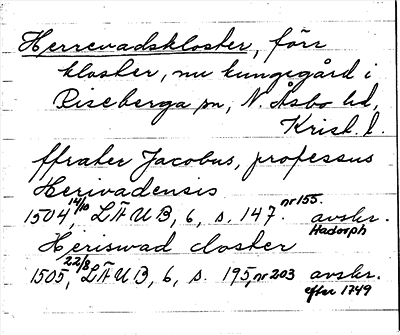 Herrevadskloster, förr
kloster, nu kungsgård i
Riseberga sn, N. Åsbo hd,
Krist. l.
ffrater Jacobus, professus
Herivadensis
1504 14/10, LÄUB, 6, s. 147. nr 155. avskr. Hadorph
Heriswad closter
1505, 22/8, LÄUB, 6, s. 195, nr 203 avskr. efter 1749